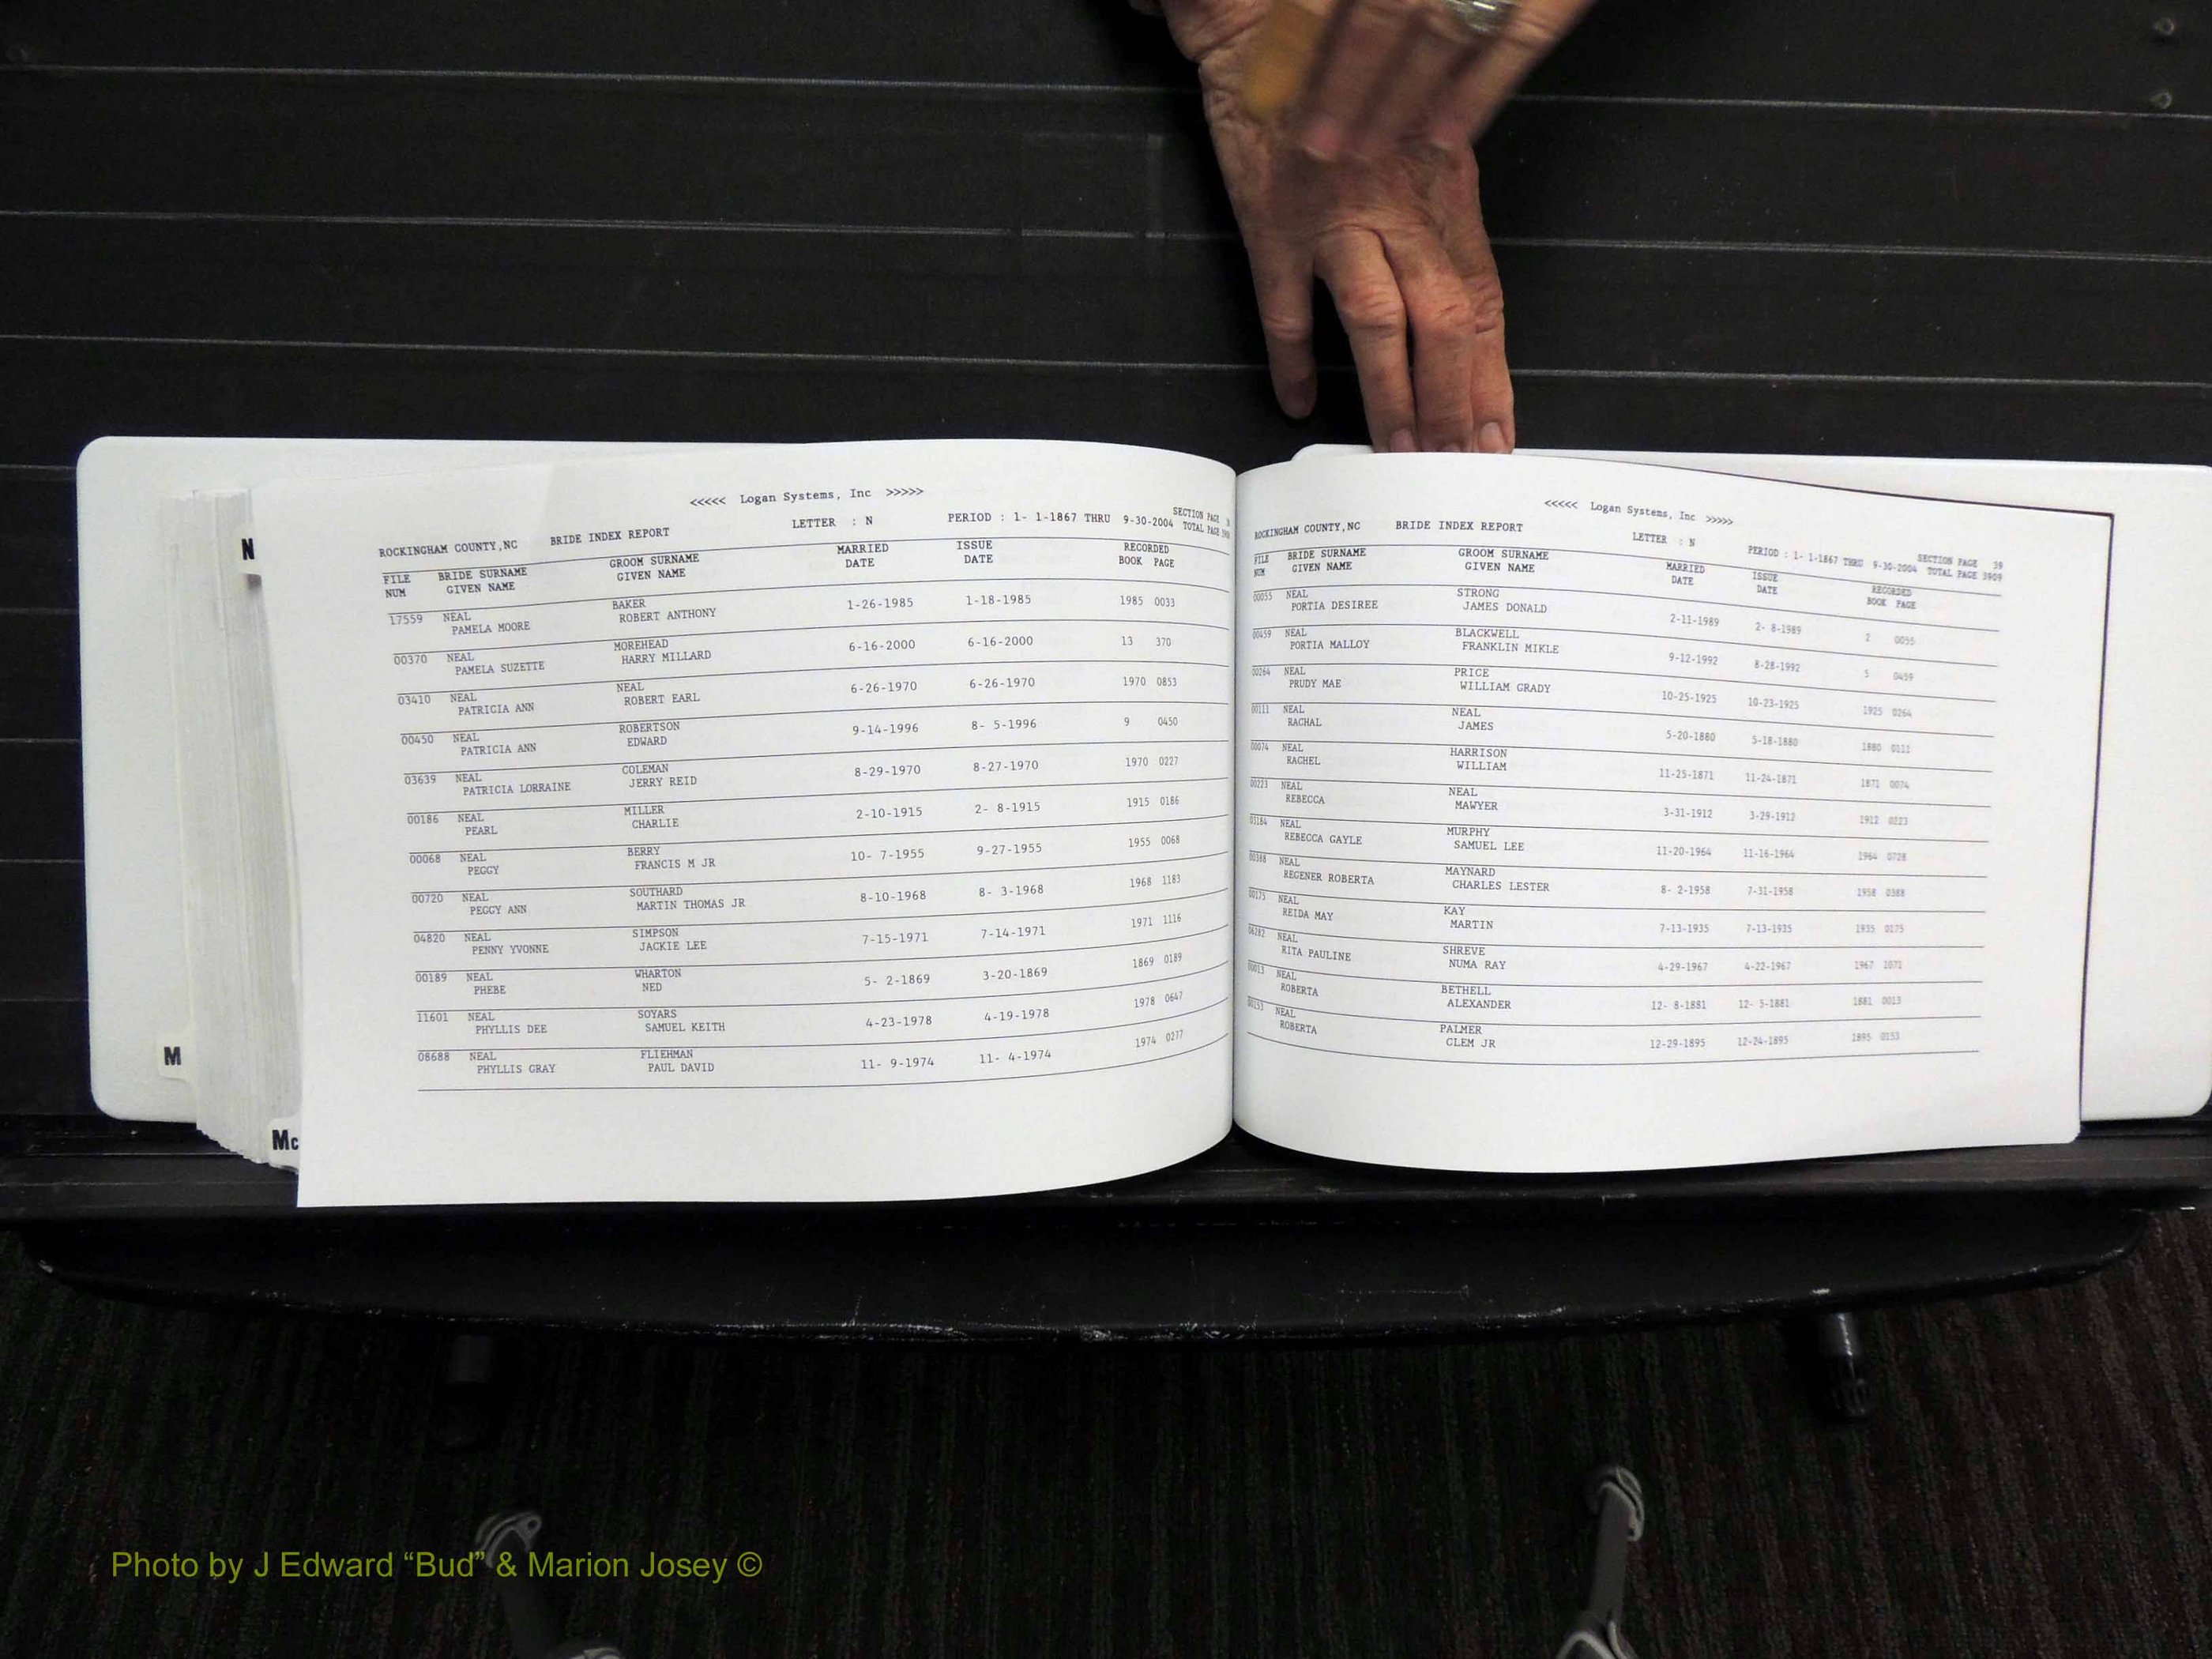 N
M
Mc
<<<<< Logan Systems, Inc >>>>>
SECTION PAGE
ROCKINGHAM COUNTY,NC BRIDE INDEX REPORT LETTER : N PERIOD : 1- 1-1867 THRU 9-30-2004 TOTAL PAGE
FILE BRIDE SURNAME GROOM SURNAME MARRIED ISSUE RECORDED
NUM GIVEN NAME GIVEN NAME DATE DATE BOOK PAGE
17559 NEAL BAKER 1-26-1985 1-18-1985 1985 0033
PAMELA MOORE ROBERT ANTHONY
00370 NEAL MOREHEAD 6-16-2000 6-16-2000 13 370
PAMELA SUZETTE HARRY MILLARD
03410 NEAL NEAL 6-26-1970 6-26-1970 1970 0853
PATRICIA ANN ROBERT EARL
00450 NEAL ROBERTSON 9-14-1996 8- 5-1996 9 0450
PATRICIA ANN EDWARD
03639 NEAL COLEMAN 8-29-1970 8-27-1970 1970 0227
PATRICIA LORRAINE JERRY REID
00186 NEAL MILLER 2-10-1915 2- 8-1915 1915 0186
PEARL CHARLIE
00068 NEAL BERRY 10- 7-1955 9-27-1955 1955 0068
PEGGY FRANCIS M JR
00720 NEAL SOUTHARD 8-10-1968 8- 3-1968 1968 1183
PEGGY ANN MARTIN THOMAS JR
04820 NEAL SIMPSON 7-15-1971 7-14-1971 1971 1116
PENNY YVONNE JACKIE LEE
00189 NEAL WHARTON 5- 2-1869 3-20-1869 1869 0189
PHEBE NED
11601 NEAL SOYARS 4-23-1978 4-19-1978 1978 0647
PHYLLIS DEE SAMUEL KEITH
08688 NEAL FLIEHMAN 11- 9-1974 11- 4-1974 1974 0277
PHYLLIS GRAY PAUL DAVID
<<<<< Logan Systems, Inc >>>>>
SECTION PAGE 39
ROCKINGHAM COUNTY,NC BRIDE INDEX REPORT LETTER : N PERIOD : 1- 1-1867 THRU 9-30-2004 TOTAL PAGE 3909
FILE BRIDE SURNAME GROOM SURNAME MARRIED ISSUE RECORDED
NUM GIVEN NAME GIVEN NAME DATE DATE BOOK PAGE
00055 NEAL STRONG 2-11-1989 2- 8-1989 2 0055
PORTIA DESIREE JAMES DONALD
00459 NEAL BLACKWELL 9-12-1992 8-28-1992 5 0459
PORTIA MALLOY FRANKLIN MIKLE
00264 NEAL PRICE 10-25-1925 10-23-1925 1925 0264
PRUDY MAE WILLIAM GRADY
00111 NEAL NEAL 5-20-1880 5-18-1880 1880 0111
RACHAL JAMES
00074 NEAL HARRISON 11-25-1871 11-24-1871 1871 0074
RACHEL WILLIAM
00223 NEAL NEAL 3-31-1912 3-29-1912 1912 0223
REBECCA MAWYER
03184 NEAL MURPHY 11-20-1964 11-16-1964 1964 0728
REBECCA GAYLE SAMUEL LEE
00388 NEAL MAYNARD 8- 2-1958 7-31-1958 1958 0388
REGENER ROBERTA CHARLES LESTER
00175 NEAL KAY 7-13-1935 7-13-1935 1935 0175
REIDA MAY MARTIN
06282 NEAL SHREVE 4-29-1967 4-22-1967 1967 1071
RITA PAULINE NUMA RAY
00013 NEAL BETHELL 12- 8-1881 12- 5-1881 1881 0013
ROBERTA ALEXANDER
00153 NEAL PALMER 12-29-1895 12-24-1895 1895 0153
ROBERTA CLEM JR
Photo by J Edward “Bud” & Marion Josey ©